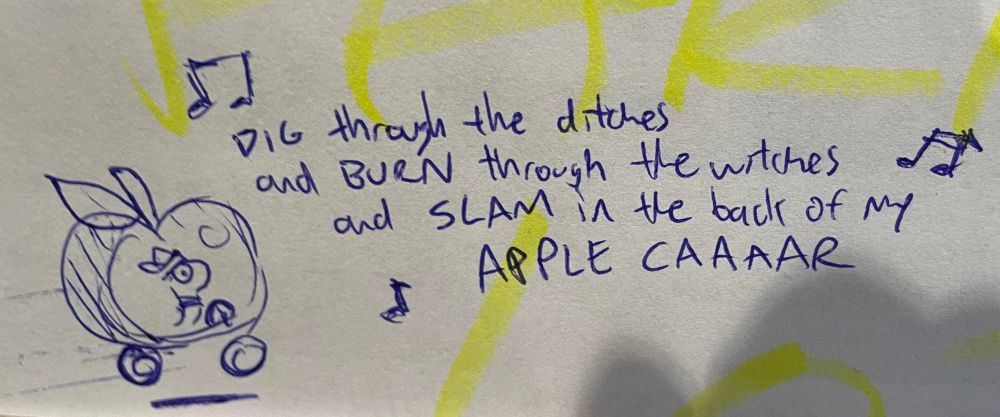 DIG through the ditches
and BURN through the witches
and SLAM in the back of my
APPLE CAAAAR